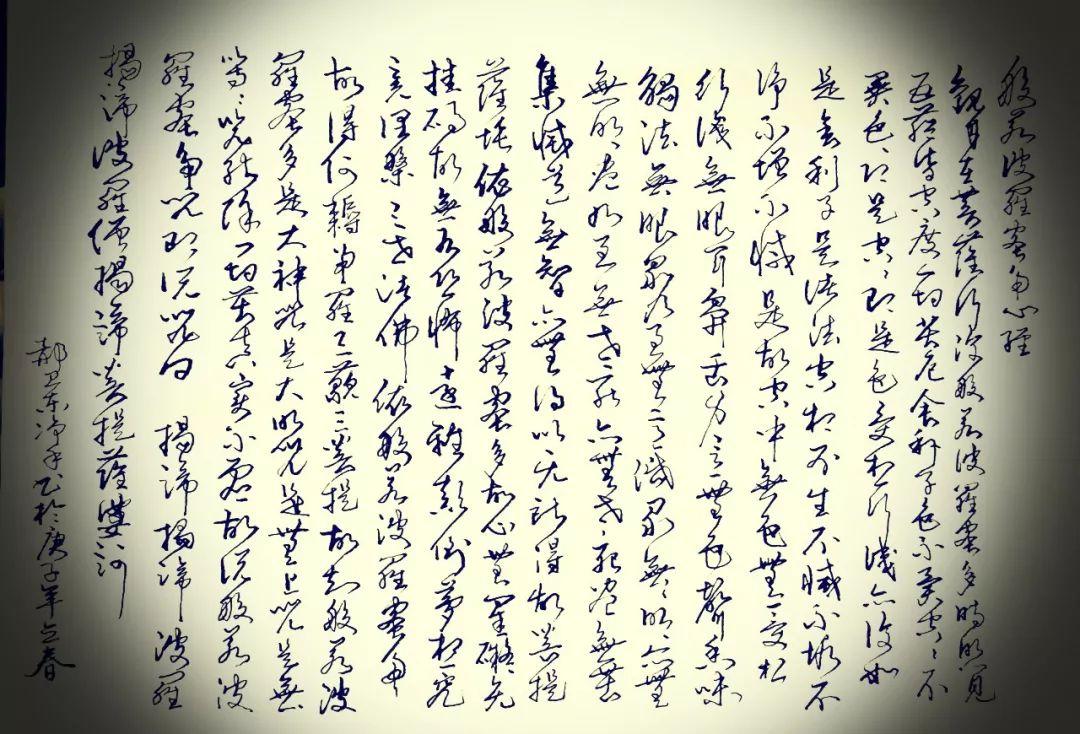 般若波羅蜜多心經
觀自在菩薩行深般若波羅蜜多時照見
五蘊皆空度一切苦厄舍利子色不異空々不
異色々即是空々即是色受想行識亦復如
是舍利子是諸法空相不生不滅不垢不
淨不增不減是故空中無色無受想
行識無眼耳鼻舌身意無色聲香味
觸法無眼界乃至無意識界無々明亦無
無明盡乃至無老死亦無老死盡無苦
集滅道無智亦無得以无所得故菩提
薩埵依般若波羅蜜多故心無罣礙无
挂碍故無有恐怖遠離顛倒夢想究
竟涅槃三世諸佛依般若波羅蜜多
故得阿耨多羅三藐三菩提故知般若波
羅蜜多是大神咒是大明咒是無上咒是無
等々咒能除一切苦真實不虛故說般若波
羅蜜多咒即說咒曰 揭諦揭諦 波羅
揭諦波羅僧揭諦菩提薩婆訶
郝 净手书於庚子年立春